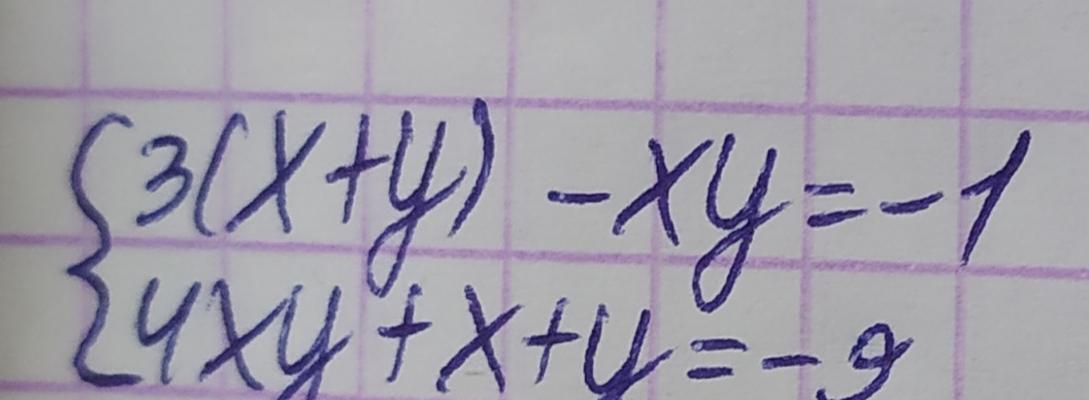 {3(x+y) -xy=-1
{4xy+x+y=-9